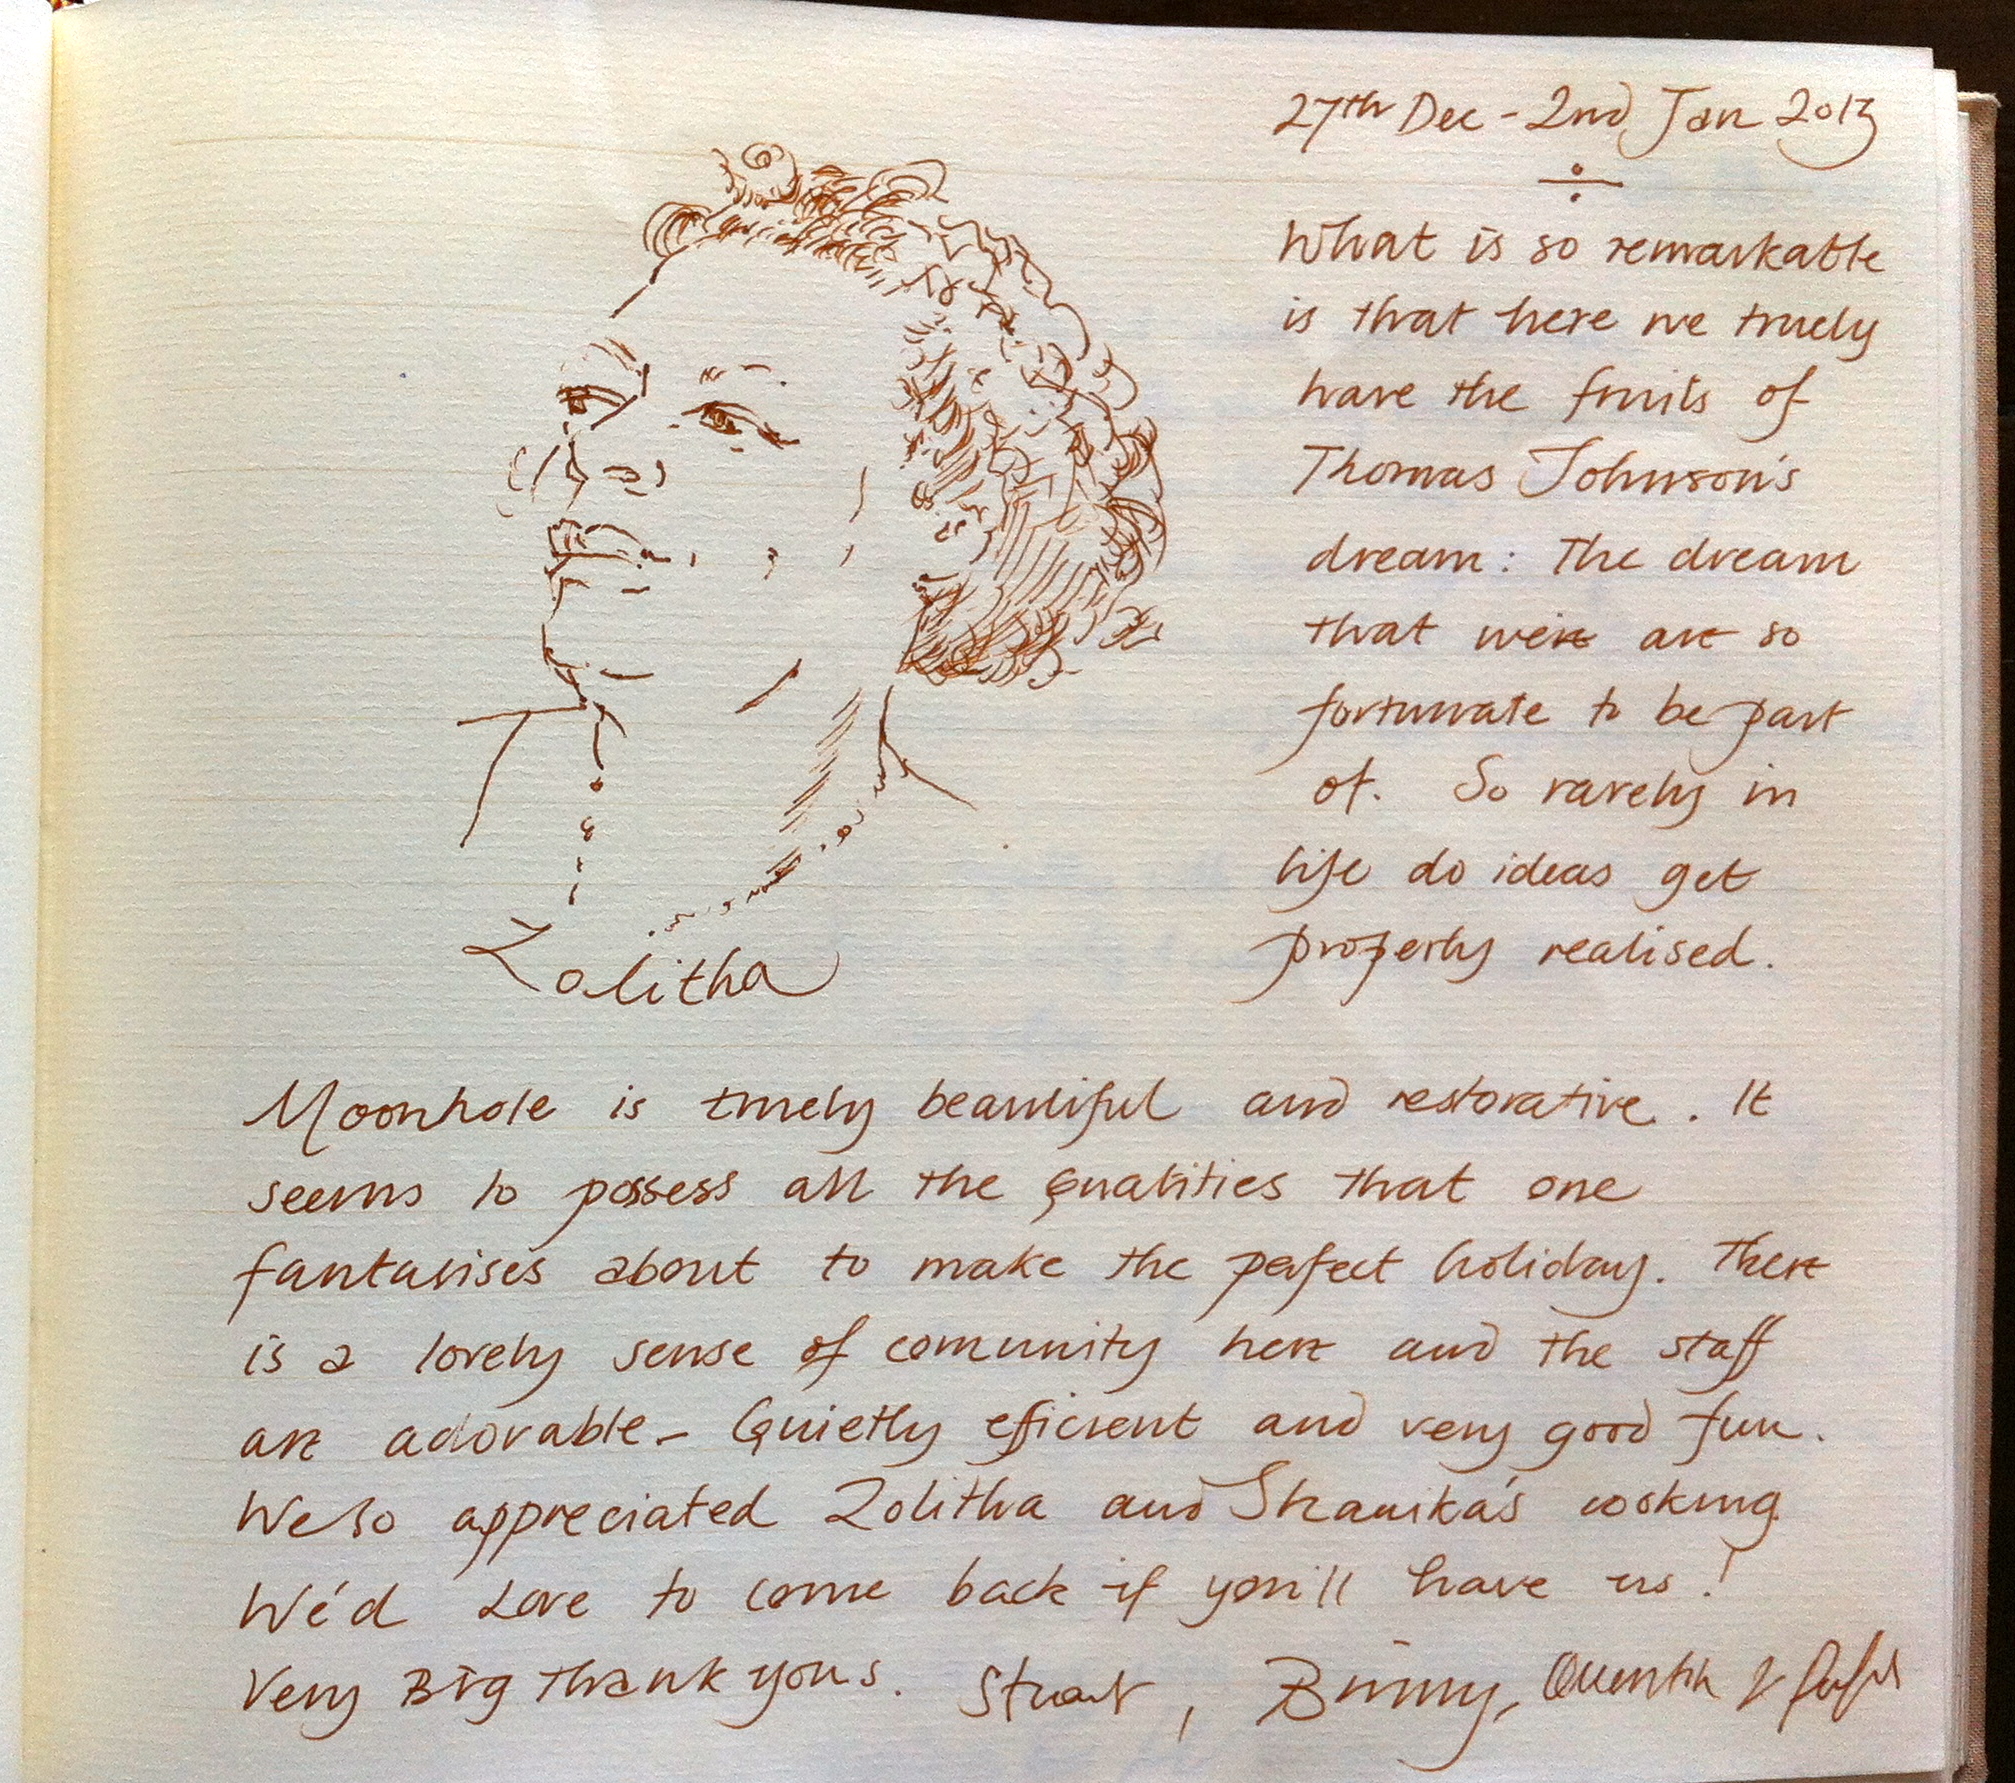 27th Dec - 2nd Jan 2013
What is so remarkable
is that here we truely
have the fruits of
Thomas Johnson's
dream: The dream
that were are so
fortunate to be part
of. So rarely in
life do ideas get
properly realised.
Zolitha
Moonhole is truely beautiful and restorative. It
seems to possess all the qualities that one
fantasises about to make the perfect holiday. There
is a lovely sense of comunity here and the staff
are adorable - Quietly efficient and very good fun.
We so appreciated Zolitha and Shanika's cooking.
We'd Love to come back if you'll have us!
Very Big thank yous. Stuart, Binny, Quentin &